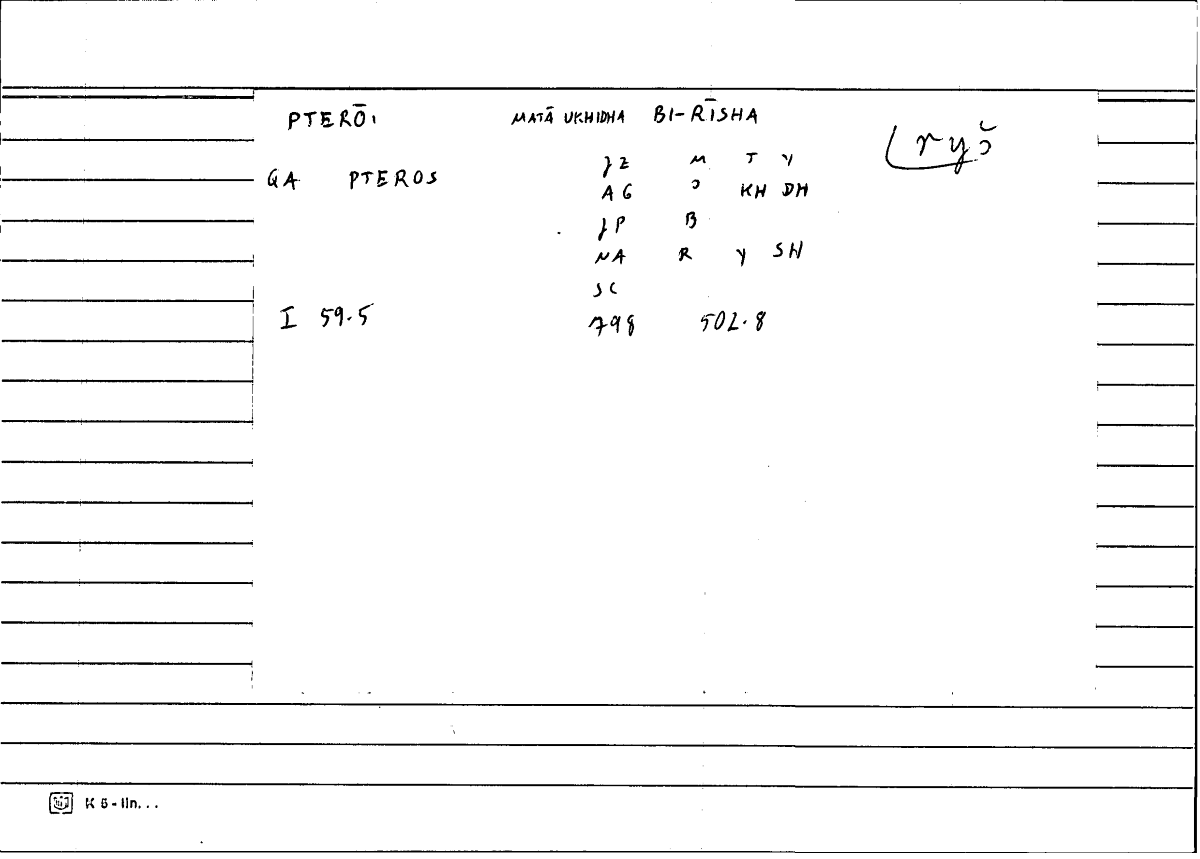 PTERŌI MATĀ UKHIDHA BI-RĪSHA
ryš
GA PTEROS
JZ M T Y
AG ʾ KH DH
JP B
NA R Y SH
SC
I 59.5 798 502.8
K 5 - lin...